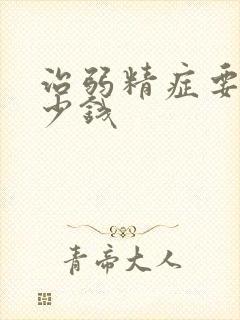 治弱精症要
少钱
青帝大人